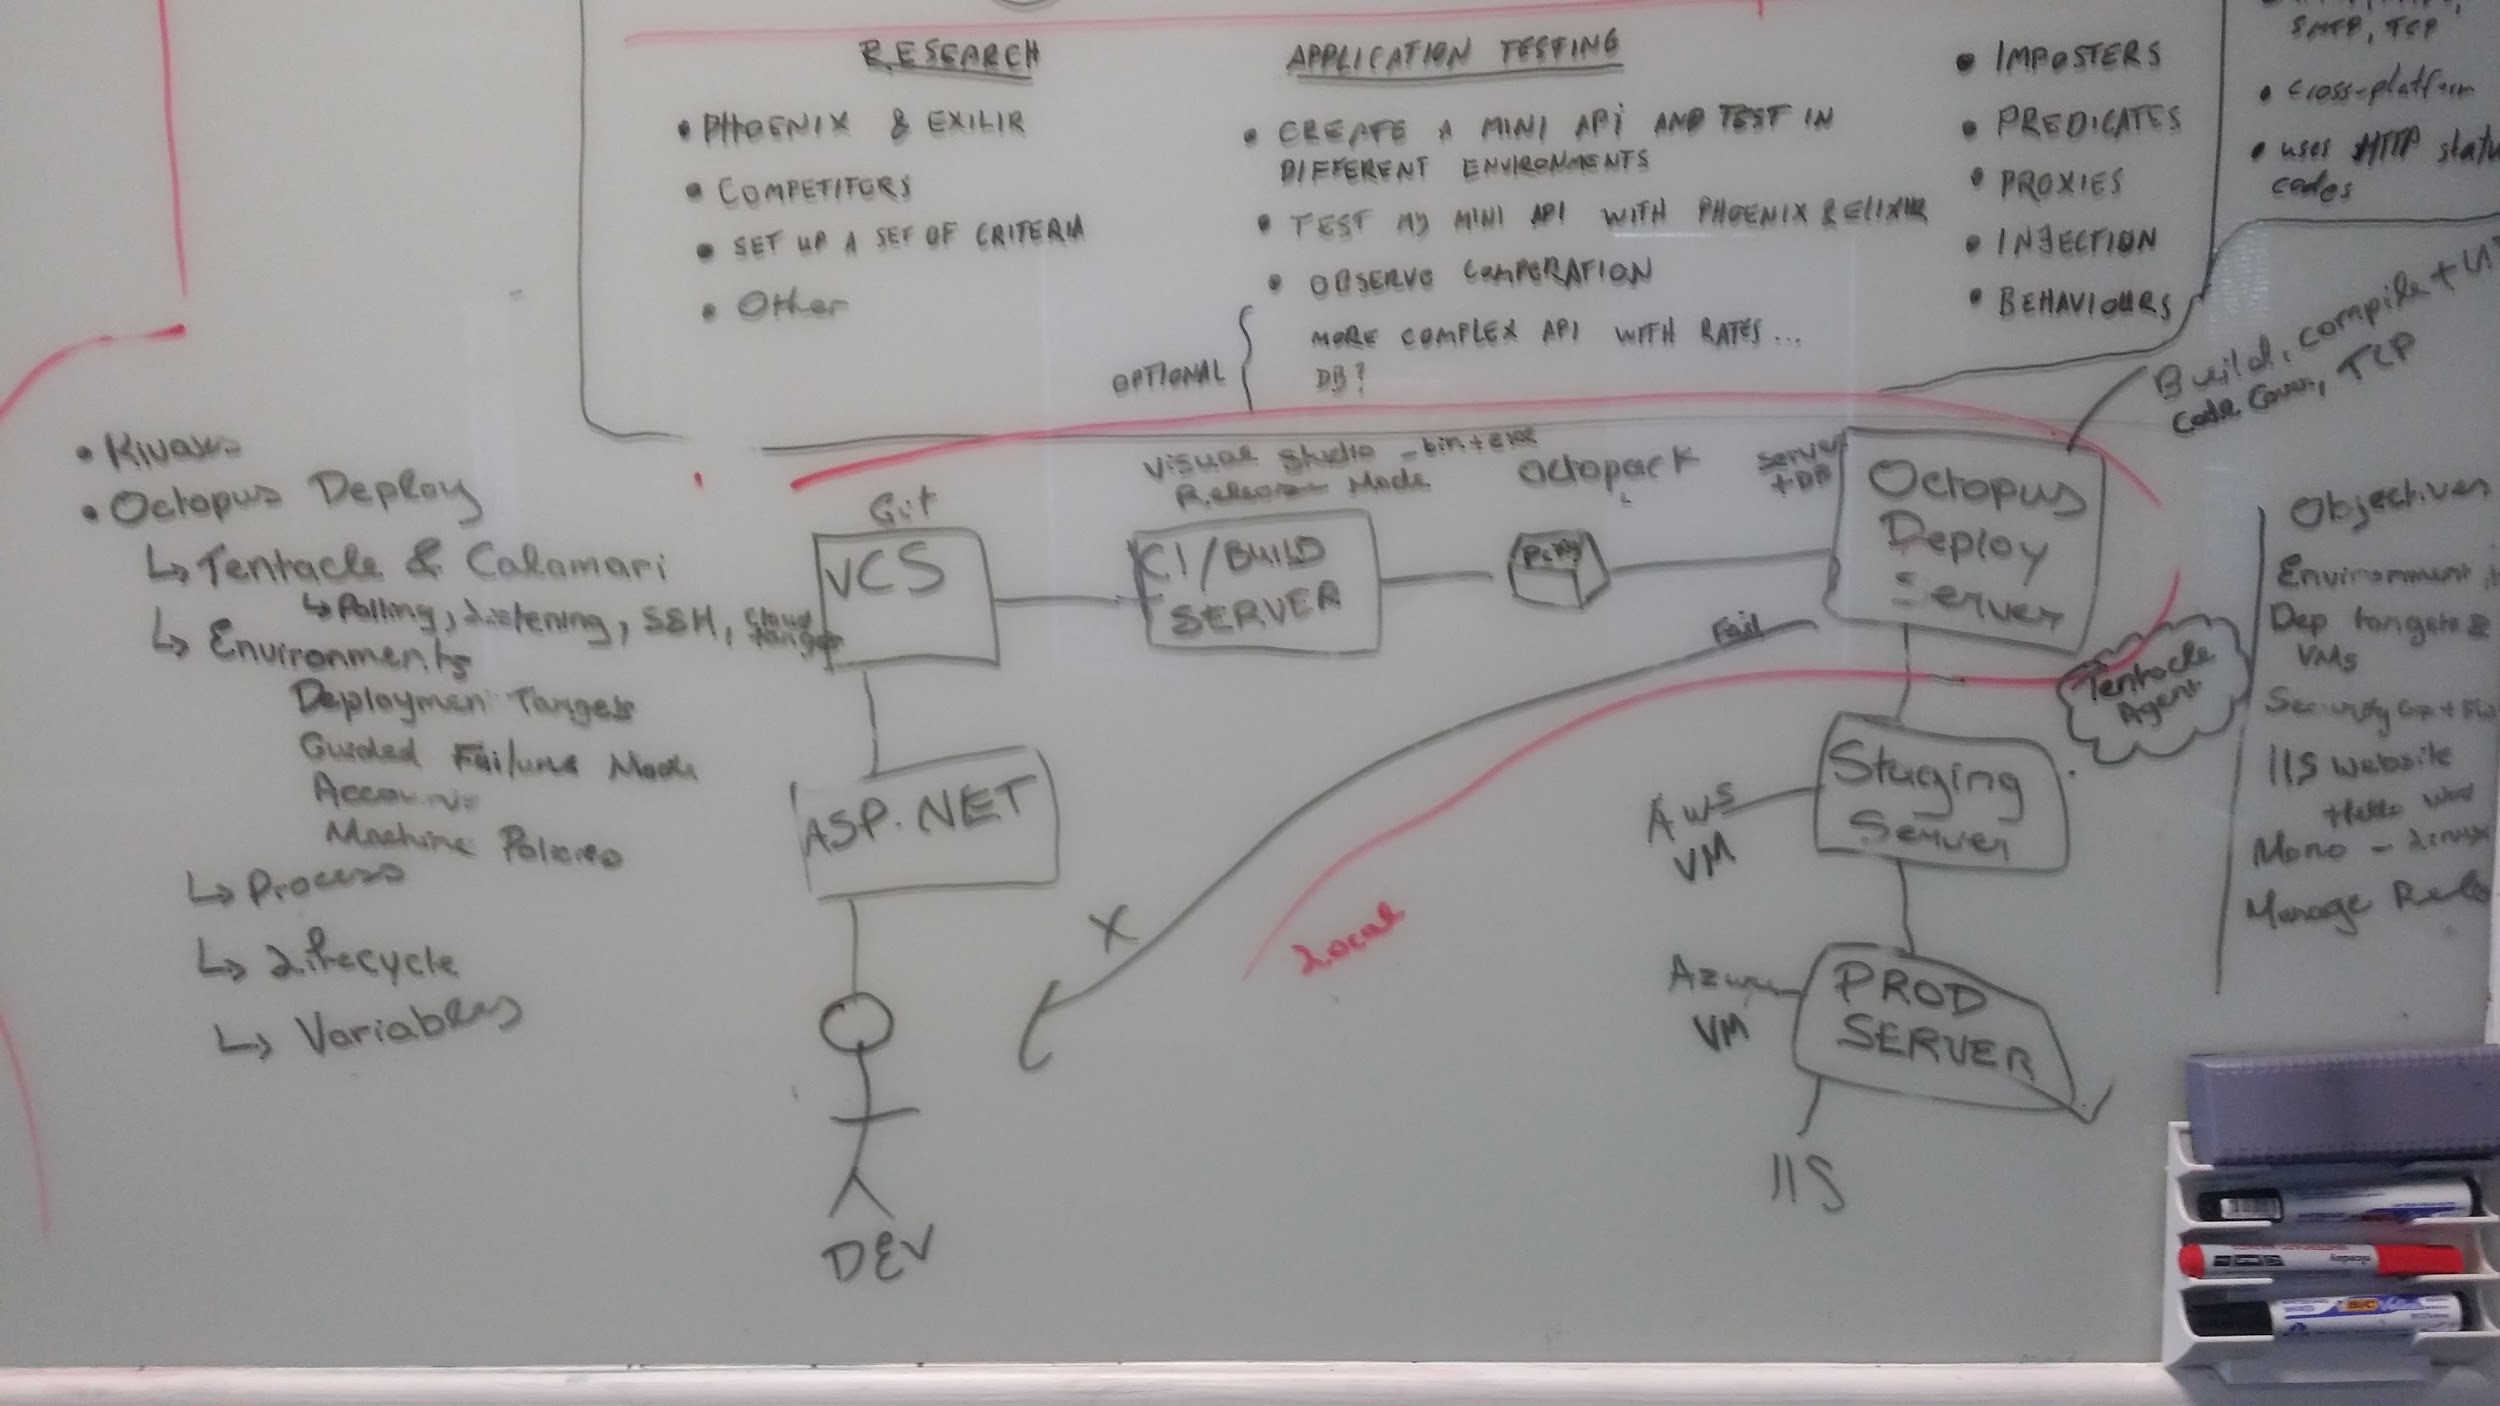 RESEARCH
• PHOENIX & EXILIR
• COMPETITORS
• SET UP A SET OF CRITERIA
• Other
APPLICATION TESTING
• CREATE A MINI API AND TEST IN
DIFFERENT ENVIRONMENTS
• TEST MY MINI API WITH PHOENIX & ELIXIR
• OBSERVE COMPERATION
OPTIONAL
MORE COMPLEX API WITH RATES...
DB?
• IMPOSTERS
• PREDICATES
• PROXIES
• INJECTION
• BEHAVIOURS
SMTP, TCP
• cross-platform
• uses HTTP statu
codes
Build, compile +
Code Cover, TCP
• Octopus Deploy
↳ Tentacle & Calamari
↳ Polling, Listening, SSH, Cloud
Target
↳ Environments
Deployment Targets
Guided Failure Mode
Accounts
Machine Policies
↳ Process
↳ Lifecycle
↳ Variables
Git
VCS
ASP.NET
DEV
Visual Studio - bin + exe
Release Mode
CI/BUILD
SERVER
Octopack
Server
+ DB
Octopus
Deploy
Server
Fail
X
Local
Tentacle
Agent
AWS
VM
Staging
Server
Azure
VM
PROD
SERVER
IIS
Objectives
Environment
Dep targets &
VMs
Security
IIS website
Hello
Mono - Linux
Manage
BIC